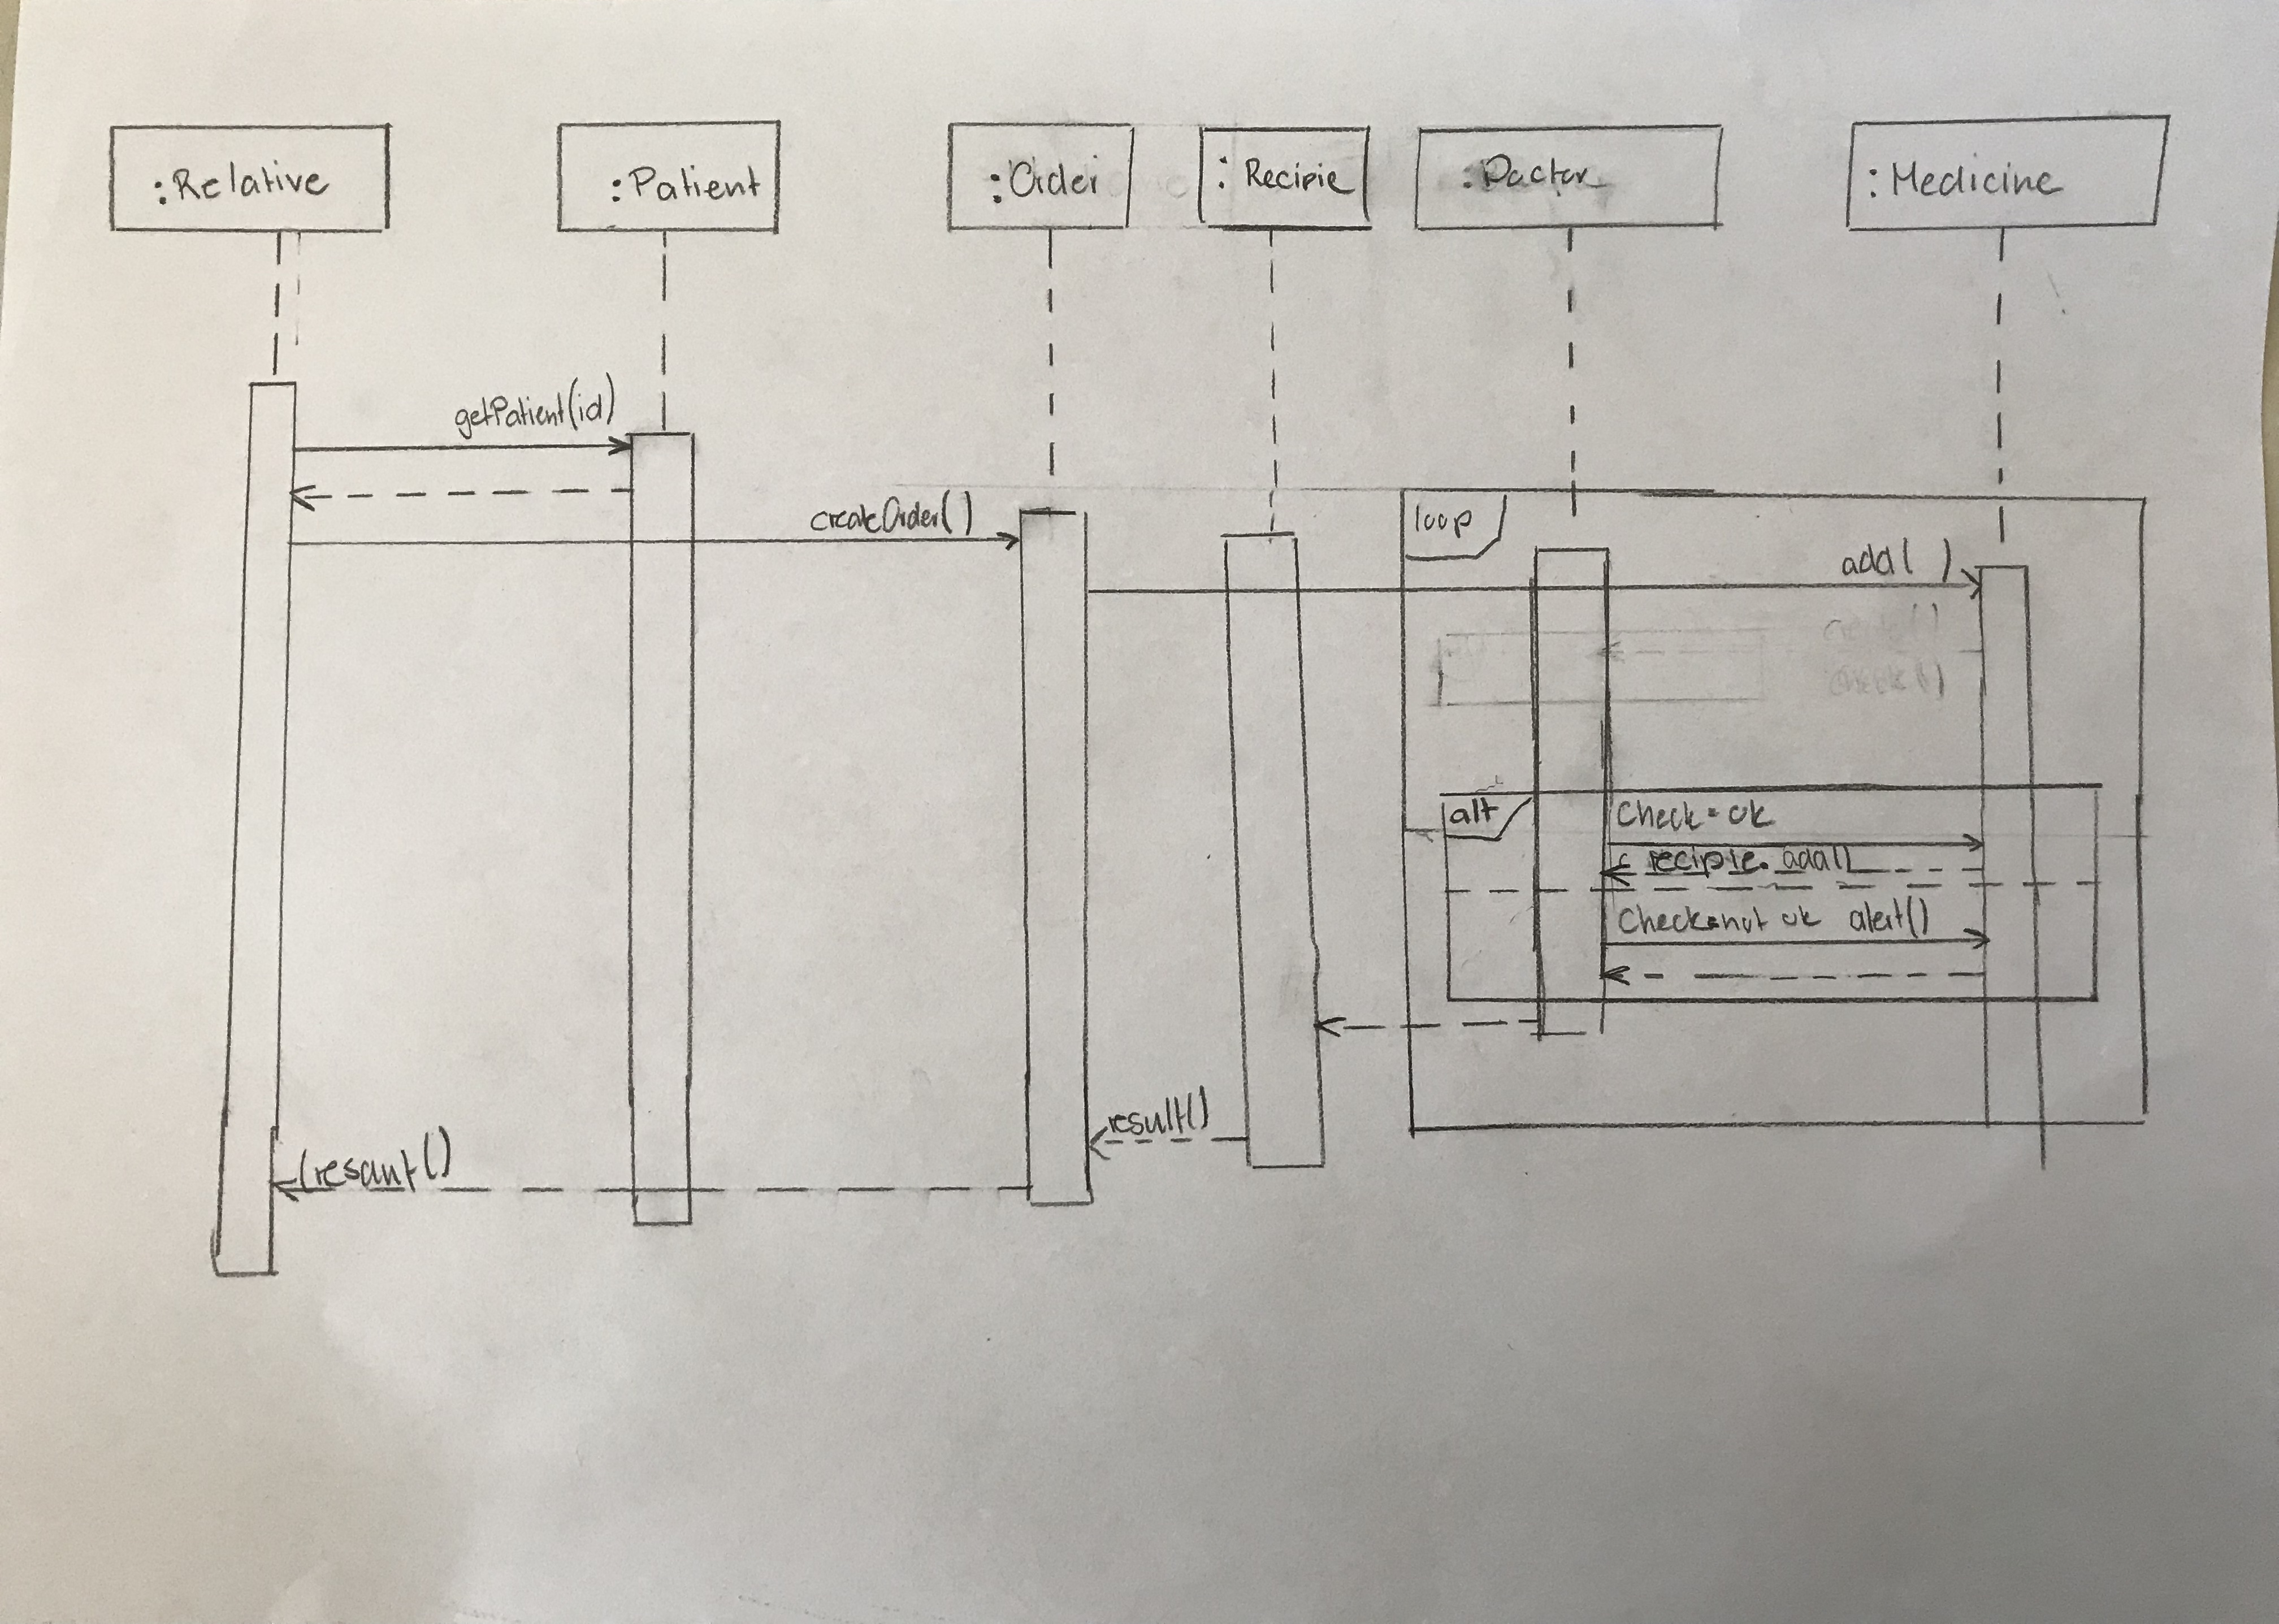 :Relative
:Patient
:Order
:Recipie
:Doctor
:Medicine
getPatient(id)
createOrder()
loop
add( )
check()
alt
Check = ok
recipie. add()
Check=not ok alert()
result()
(resant()